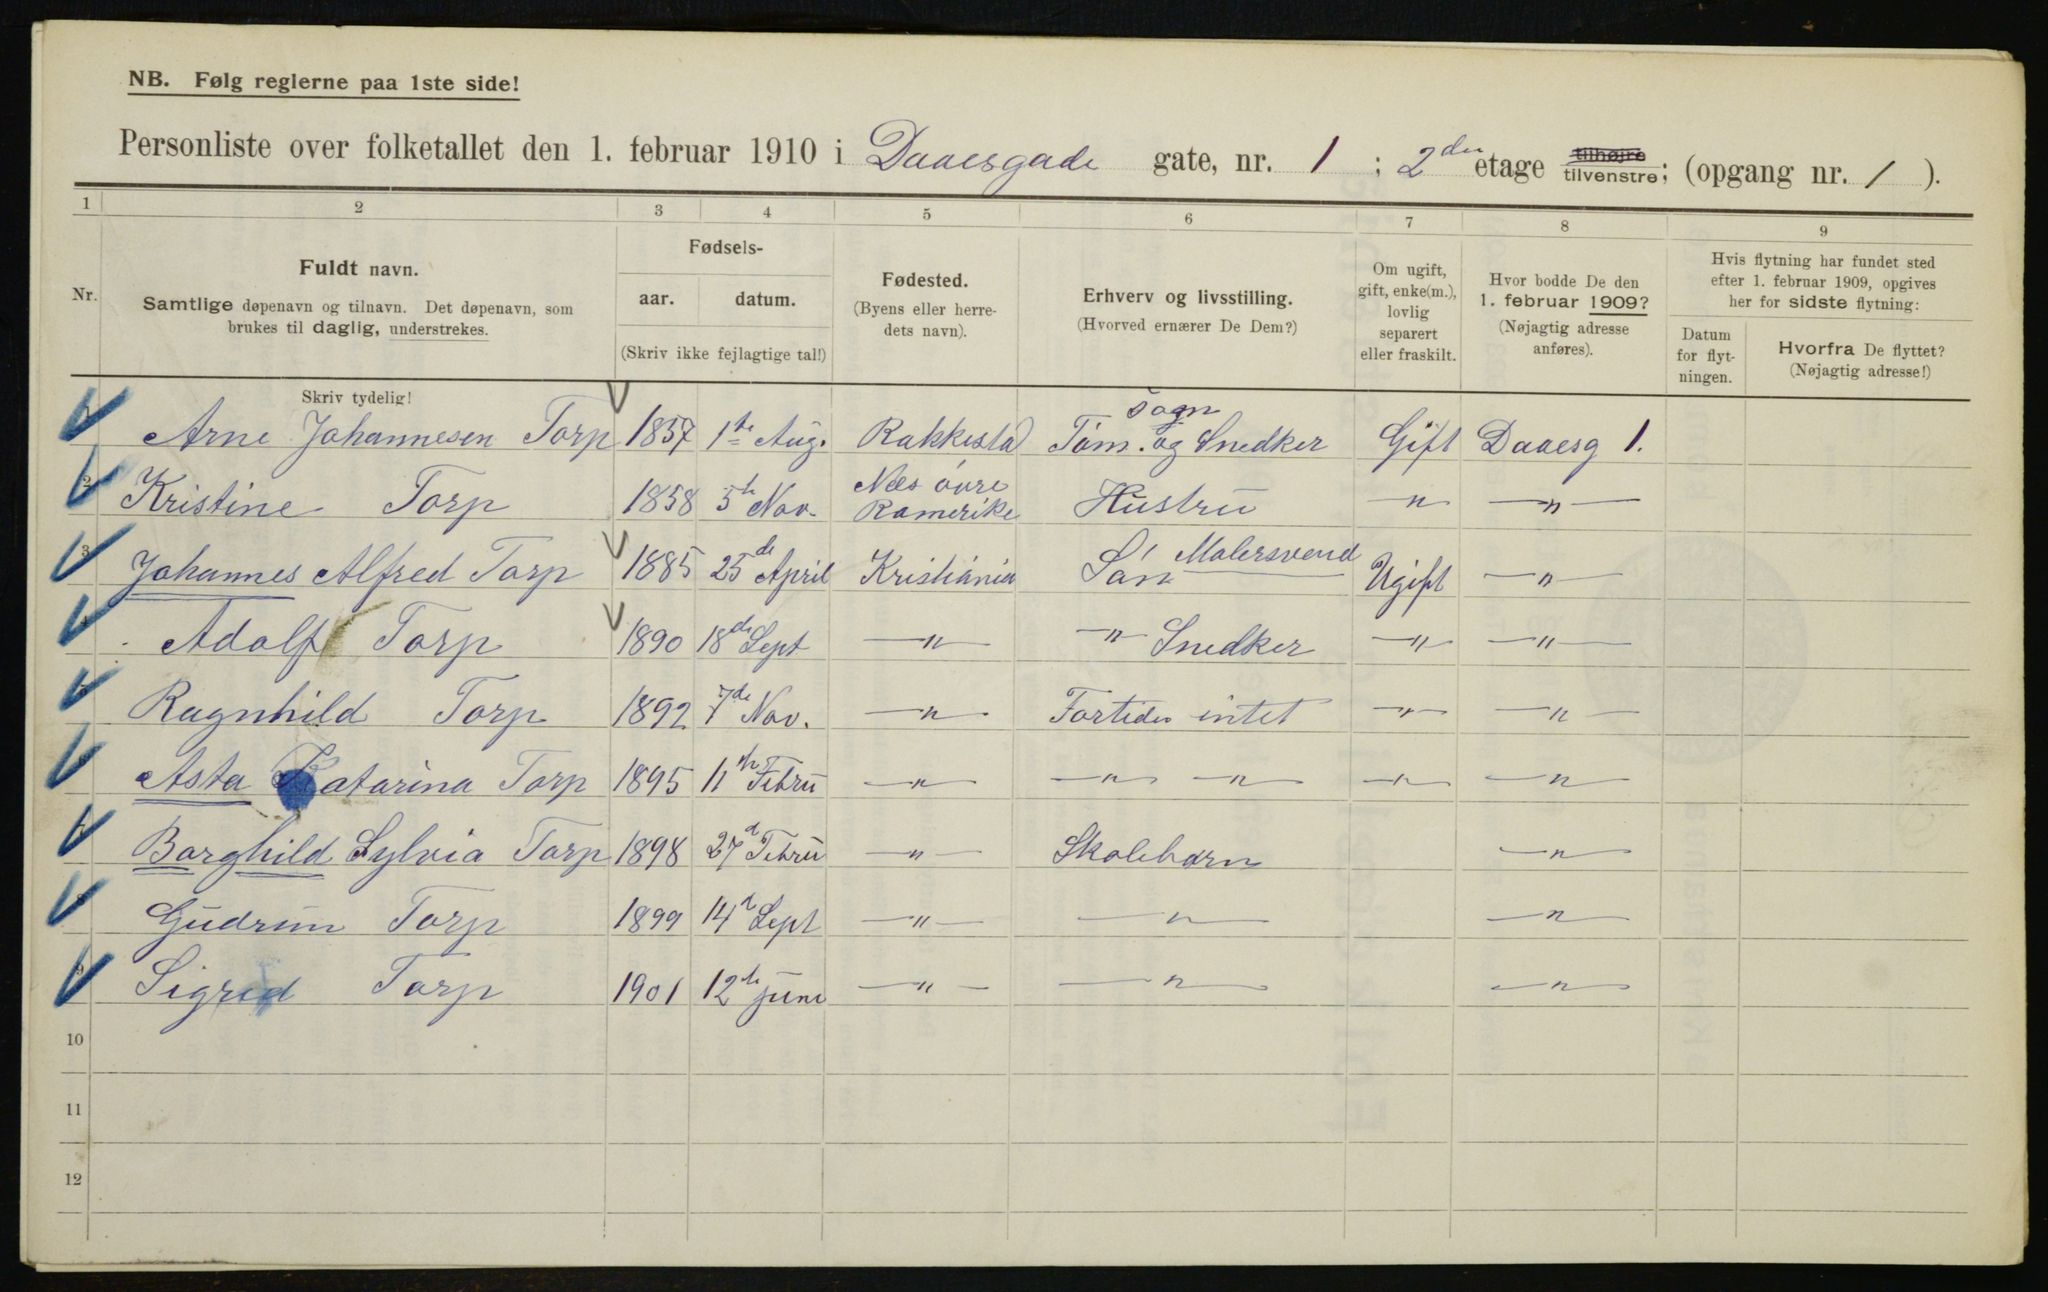 NB. Følg reglerne paa 1ste side!
Personliste over folketallet den 1. februar 1910 i Daaesgade gate, nr. 1 ; 2den etage tilhøjre tilvenstre; (opgang nr. 1 ).
1 2 3 4 5 6 7 8 9
Nr.
Fuldt navn.
Samtlige døpenavn og tilnavn. Det døpenavn, som
brukes til daglig, understrekes.
Fødsels-
aar. datum.
(Skriv ikke fejlagtige tal!)
Fødested.
(Byens eller herre-
dets navn).
Erhverv og livsstilling.
(Hvorved ernærer De Dem?)
Om ugift,
gift, enke(m.),
lovlig
separert
eller fraskilt.
Hvor bodde De den
1. februar 1909?
(Nøjagtig adresse
anføres).
Hvis flytning har fundet sted
efter 1. februar 1909, opgives
her for sidste flytning:
Datum
for flyt-
ningen.
Hvorfra De flyttet?
(Nøjagtig adresse!)
Skriv tydelig!
1 Arne Johannesen Torp 1857 1te Aug. Rakkestad Töm. og Snedker Gift Daaesg 1.
2 Kristine Torp 1858 5te Nov. Næs övre Romerike Hustru " "
3 Johannes Alfred Torp 1885 25de April Kristiania Sön Malersvend Ugift "
4 Adolf Torp 1890 18de Sept " " Snedker " "
5 Ragnhild Torp 1892 7de Nov. " Fortiden intet " "
6 Asta Katarina Torp 1895 11te Febru " " " " "
7 Borghild Sylvia Torp 1898 27d Febru " Skolebarn "
8 Gudrun Torp 1899 14d Sept " " "
9 Sigrid Torp 1901 12te juni " " "
10
11
12